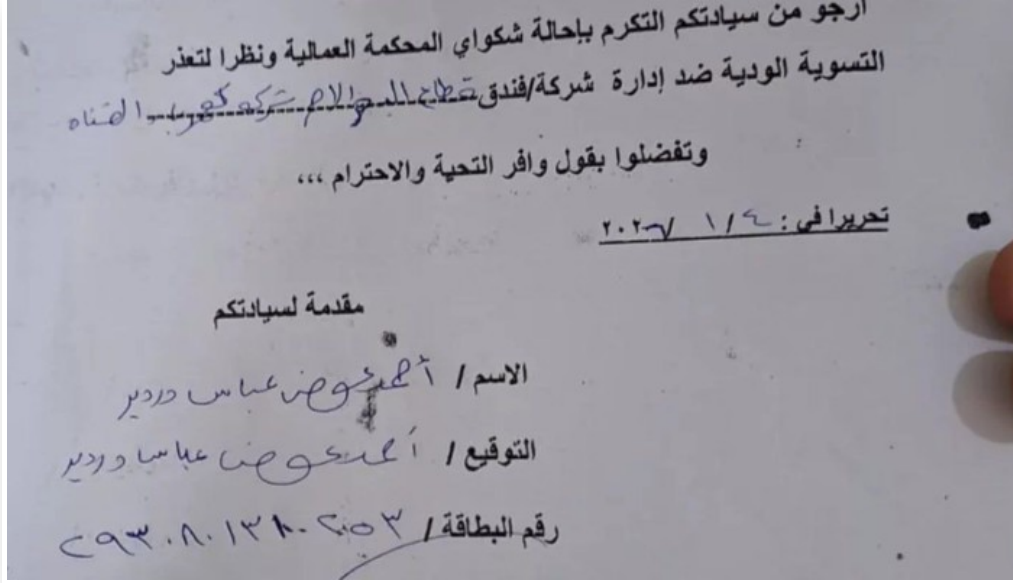 أرجو من سيادتكم التكرم بإحالة شكواي المحكمة العمالية ونظرا لتعذر
التسوية الودية ضد إدارة شركة/فندق قطاع البحر الاحمر شركه كهرباء القناه
وتفضلوا بقول وافر التحية والاحترام ،،،
تحريرا في : ٤ / ١ / ٢٠٢٦
مقدمة لسيادتكم
الاسم / أحمد عوض عباس دردير
التوقيع / أحمد عوض عباس دردير
رقم البطاقة / ٢٩٣٠٨٠١٣٨٠٢٥٣